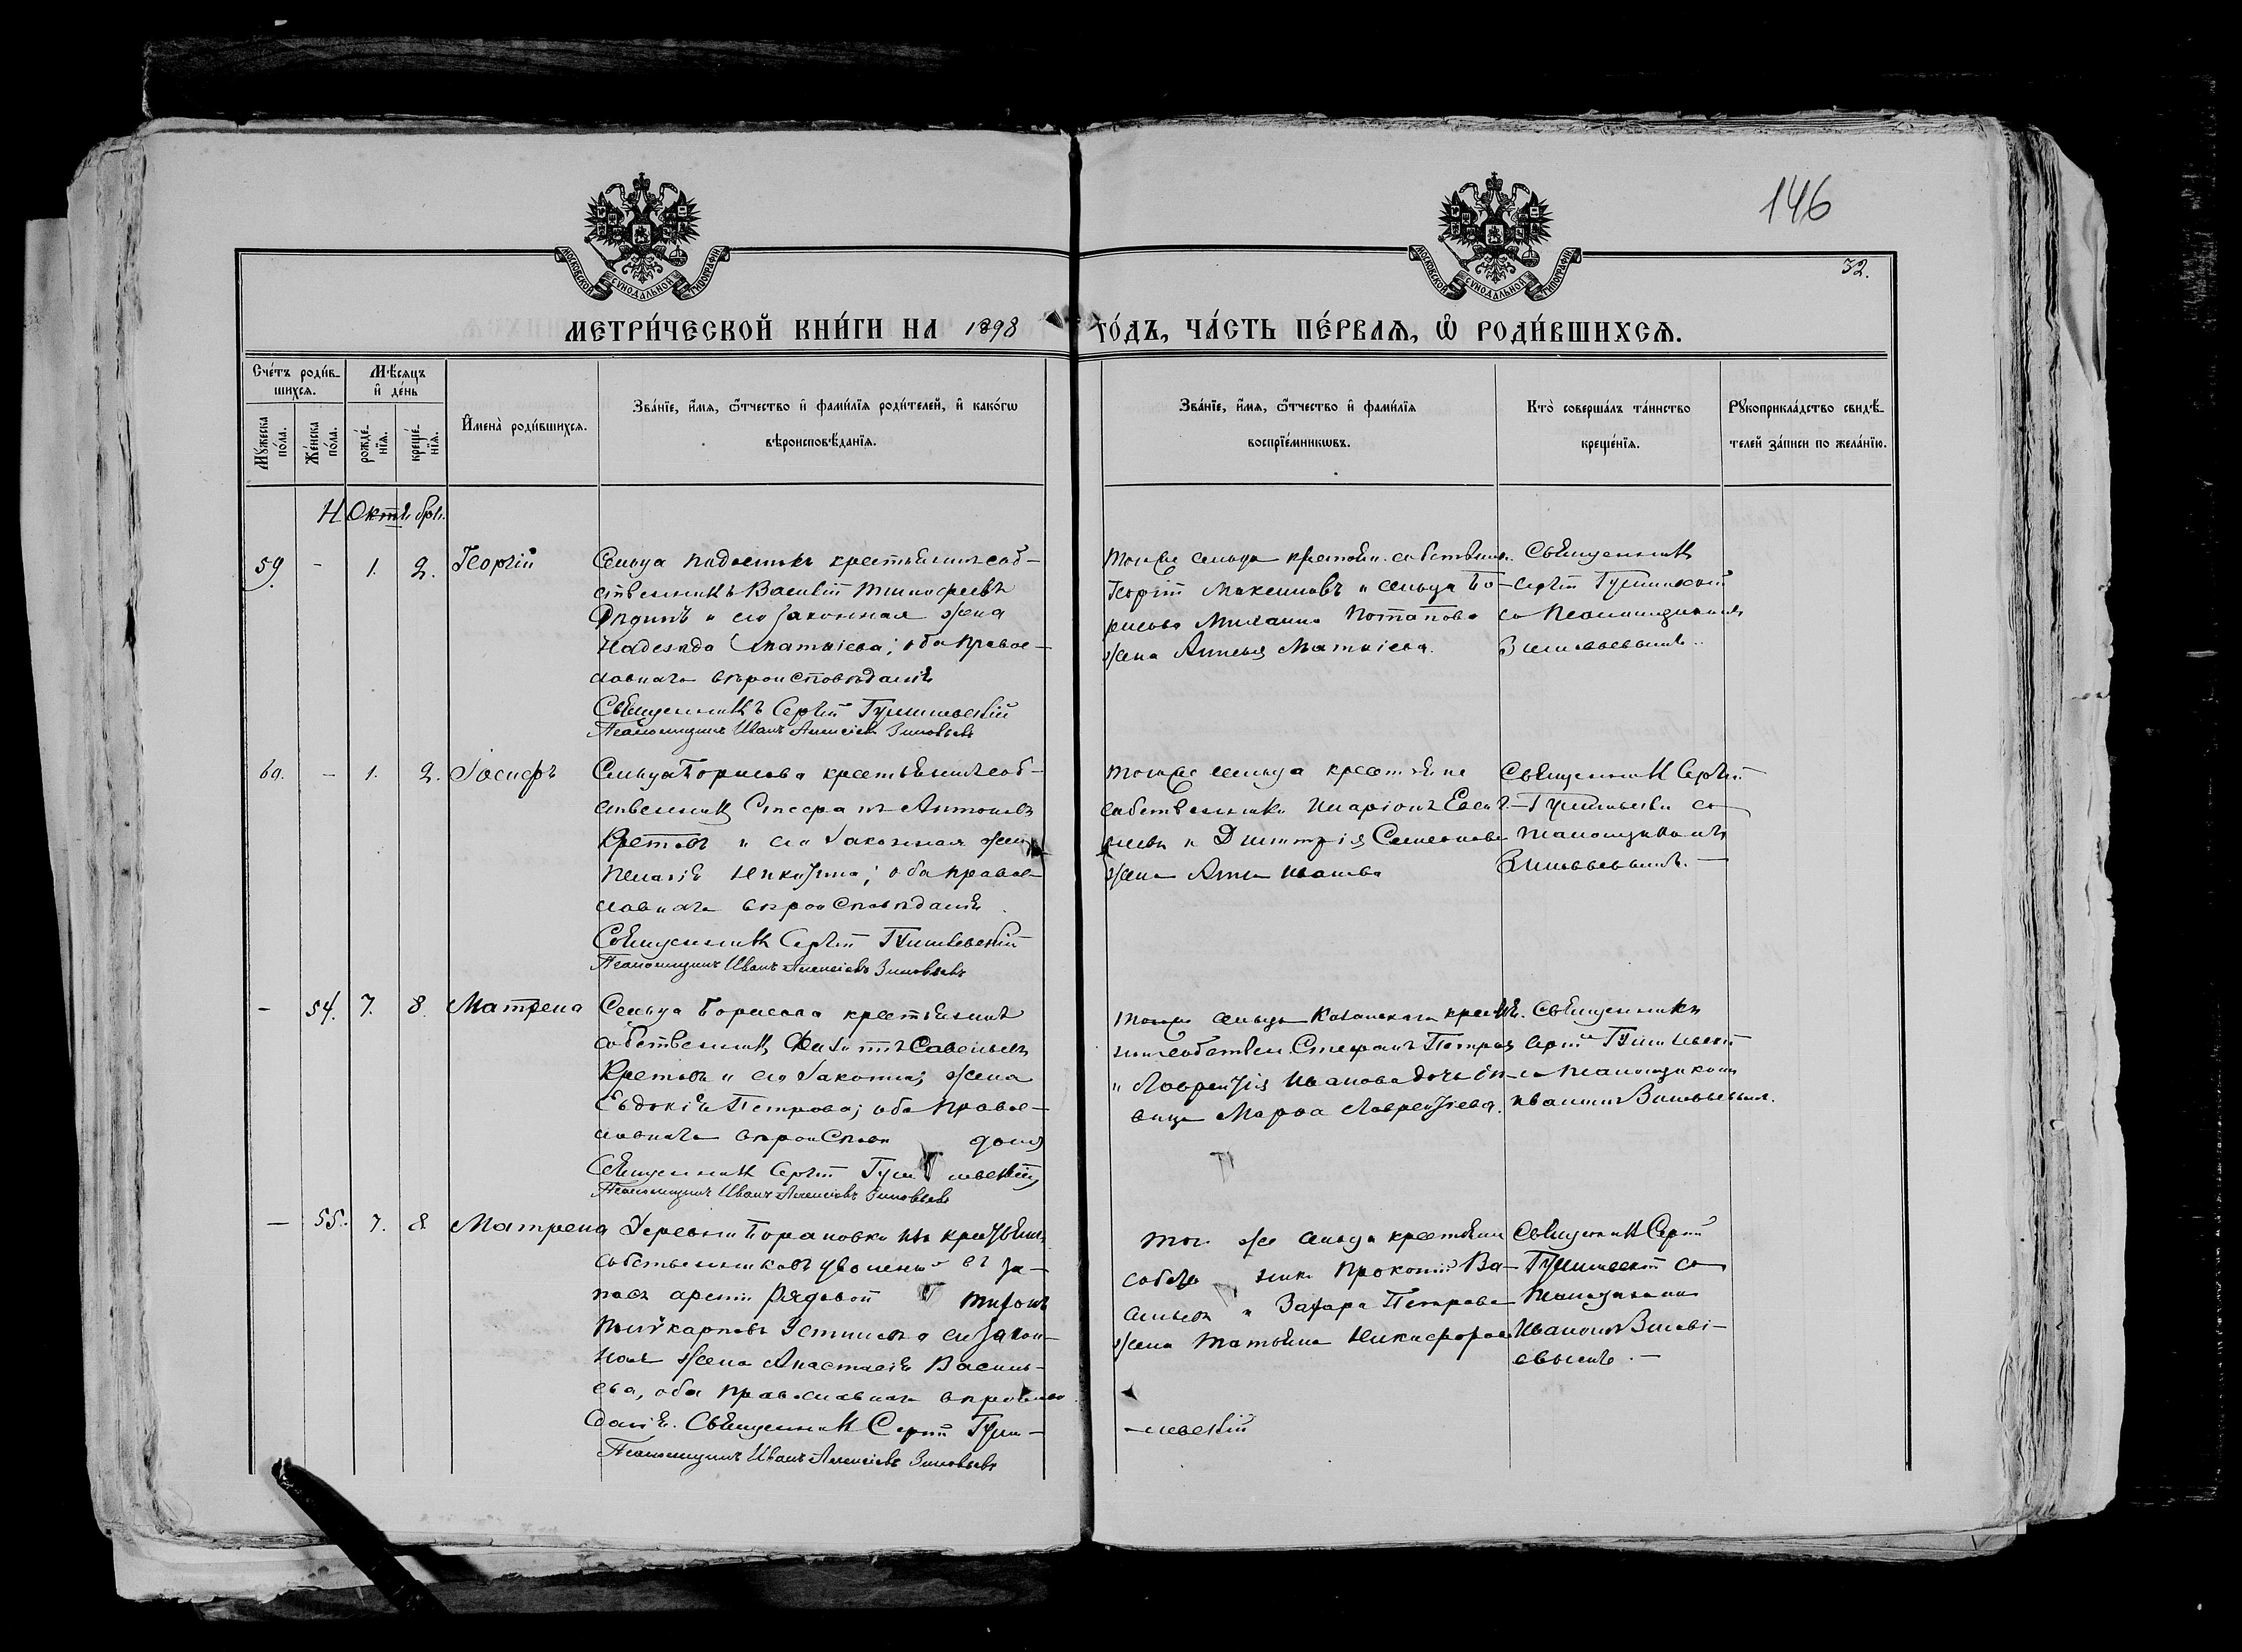 146
32.
МОСКОВСКОЙ СѴНОДАЛЬНОЙ ТИПОГРАФІИ
МОСКОВСКОЙ СѴНОДАЛЬНОЙ ТИПОГРАФІИ
МЕТРИ́ЧЕСКОЙ КНИ́ГИ НА 1898 ГО́ДЪ, ЧА́СТЬ ПЕ́РВАѦ, Ѽ РОДИ́ВШИХСѦ.
Сче́тъ роди́в-
шихсѧ.
Мѣ́сѧцъ
и҆ де́нь
Мꙋ́жеска
по́ла.
Же́нска
по́ла.
рожде́-
нїѧ.
креще́-
нїѧ.
И҆мена̀ роди́вшихсѧ.
Зва́нїе, и҆́мѧ, ѻ҆́тчество и҆ фами́лїѧ роди́телей, и҆ како́гѡ
вѣроисповѣ́данїѧ.
Зва́нїе, и҆́мѧ, ѻ҆́тчество и҆ фами́лїѧ
воспрїе́мникѡвъ.
Кто̀ соверша́лъ та́инство
креще́нїѧ.
Рꙋкоприкла́дство свидѣ́-
телей за́писи по жела́нїю.
Октября.
59. - 1. 2. Георгій
Сельца крестьянинъ соб-
ственникъ Василій Тимофеевъ
и его законная жена
Надежда Матвіева; оба право-
славнаго вѣроисповѣданія
Священникъ Сергій Гумилевскій
Псаломщикъ Иванъ Алексіевъ Зиновьевъ
Тогоже сельца крестьян. собственн.
Георгій Максимовъ и сельца Бо-
рисова Михаила Потапова
жена Матвіева.
Священникъ
Сергій Гумилевскій
со Псаломщикомъ
Зиновьевымъ.
60. - 1. 2. Іосифъ
Сельца Борисова крестьянинъ соб-
ственникъ Антоновъ
Кретовъ и его законная жена
Пелагія оба право-
славнаго вѣроисповѣданія
Священникъ Сергій Гумилевскій
Псаломщикъ Иванъ Алексіевъ Зиновьевъ
Тогоже сельца крестьяне
собственники Иларіонъ
и Димитрія Семенова
жена Анна Иванова
Священникъ Сергій
Гумилевскій со
Псаломщикомъ
Зиновьевымъ.
- 54. 7. 8. Матрена
Сельца Борисова крестьянинъ
собственникъ Савельевъ
Кретовъ и его законная жена
Евдокія Петрова; оба право-
славнаго вѣроисповѣданія
Священникъ Сергій Гумилевскій
Псаломщикъ Иванъ Алексіевъ Зиновьевъ
сельца Казанскаго крестья-
нинъ собствен. Стефанъ Петровъ
и Лаврентія Иванова дочь дѣ-
вица Марѳа Лаврентіева.
Священникъ
Сергій Гумилевскій
со Псаломщикомъ
Иваномъ Зиновьевымъ.
- 55. 7. 8. Матрена
Деревни Борановки изъ крестьянъ
собственниковъ уволенный въ за-
пасъ арміи рядовой Тихонъ
Поликарповъ Устиновъ и его закон-
ная жена Анастасія Василь-
ева, оба православнаго вѣроисповѣ-
данія. Священникъ Сергій Гуми-
-левскій
Псаломщикъ Иванъ Алексіевъ Зиновьевъ
Того же сельца крестьянинъ
собственникъ Прокопій Ва-
сильевъ и Захара Петрова
жена Татьяна Никифорова
Священникъ Сергій
Гумилевскій со
Псаломщикомъ
Иваномъ Зиновь-
евымъ.